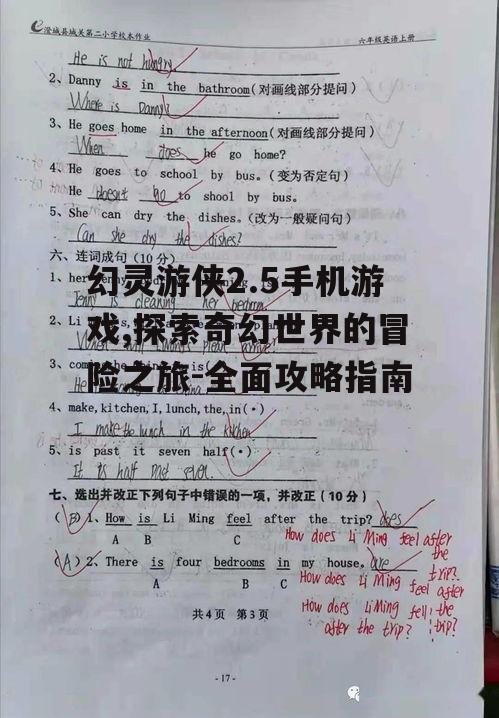 澄城县城关第二小学校本作业 六年级英语上册
He is not hungry
2、Danny is in the bathroom(对画线部分提问)
Where is Danny?
3、He goes home in the afternoon(对画线部分提问)
When does he go home?
4、He goes to school by bus。(变为否定句)
He doesn't go to shool by bus.
5、She can dry the dishes.(改为一般疑问句)
Can she dry the dishes?
六、连词成句(10分)
幻灵游侠2.5手机游
戏,探索奇幻世界的冒
险之旅-全面攻略指南
1、her
Jenny is cleaning her bedroom.
2、Li
3、com
4、make,kitchen,I,lunch,the,in(·)
I make the lunch in the kitchen
5、is past it seven half(·)
It is half past seven.
七、选出并改正下列句子中错误的一项,并改正(10分)
(B)1、How is Li Ming feel after the trip? does
A B C
How does Li Ming feel after the trip?
(A)2、There is four bedrooms in my house。are
A B C
How does Li Ming feel after the trip?
How does Li Ming fell after the trip?
共4页 第3页
-17-